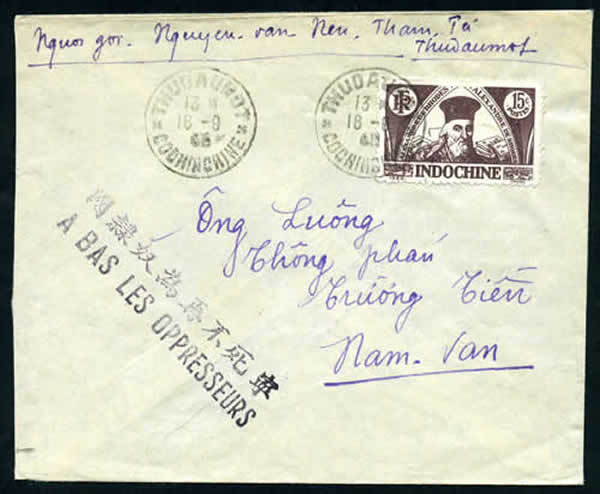 Nguoi goi. Nguyen-van Nen. Tham. Tá
Thudaumot
THUDAUMOT
13 H
18 -8
45
COCHINCHINE
THUDAU
13
18 -
45
COCHINCHINE
RF
ALEXANDRE DE RHODES
ALEXANDRE DE RHODES
15c
POSTES
INDOCHINE
Ông Luông
Thông phán
Trường Tiền
Nam-Van
寧死不再為奴隸
A BAS LES OPPRESSEURS